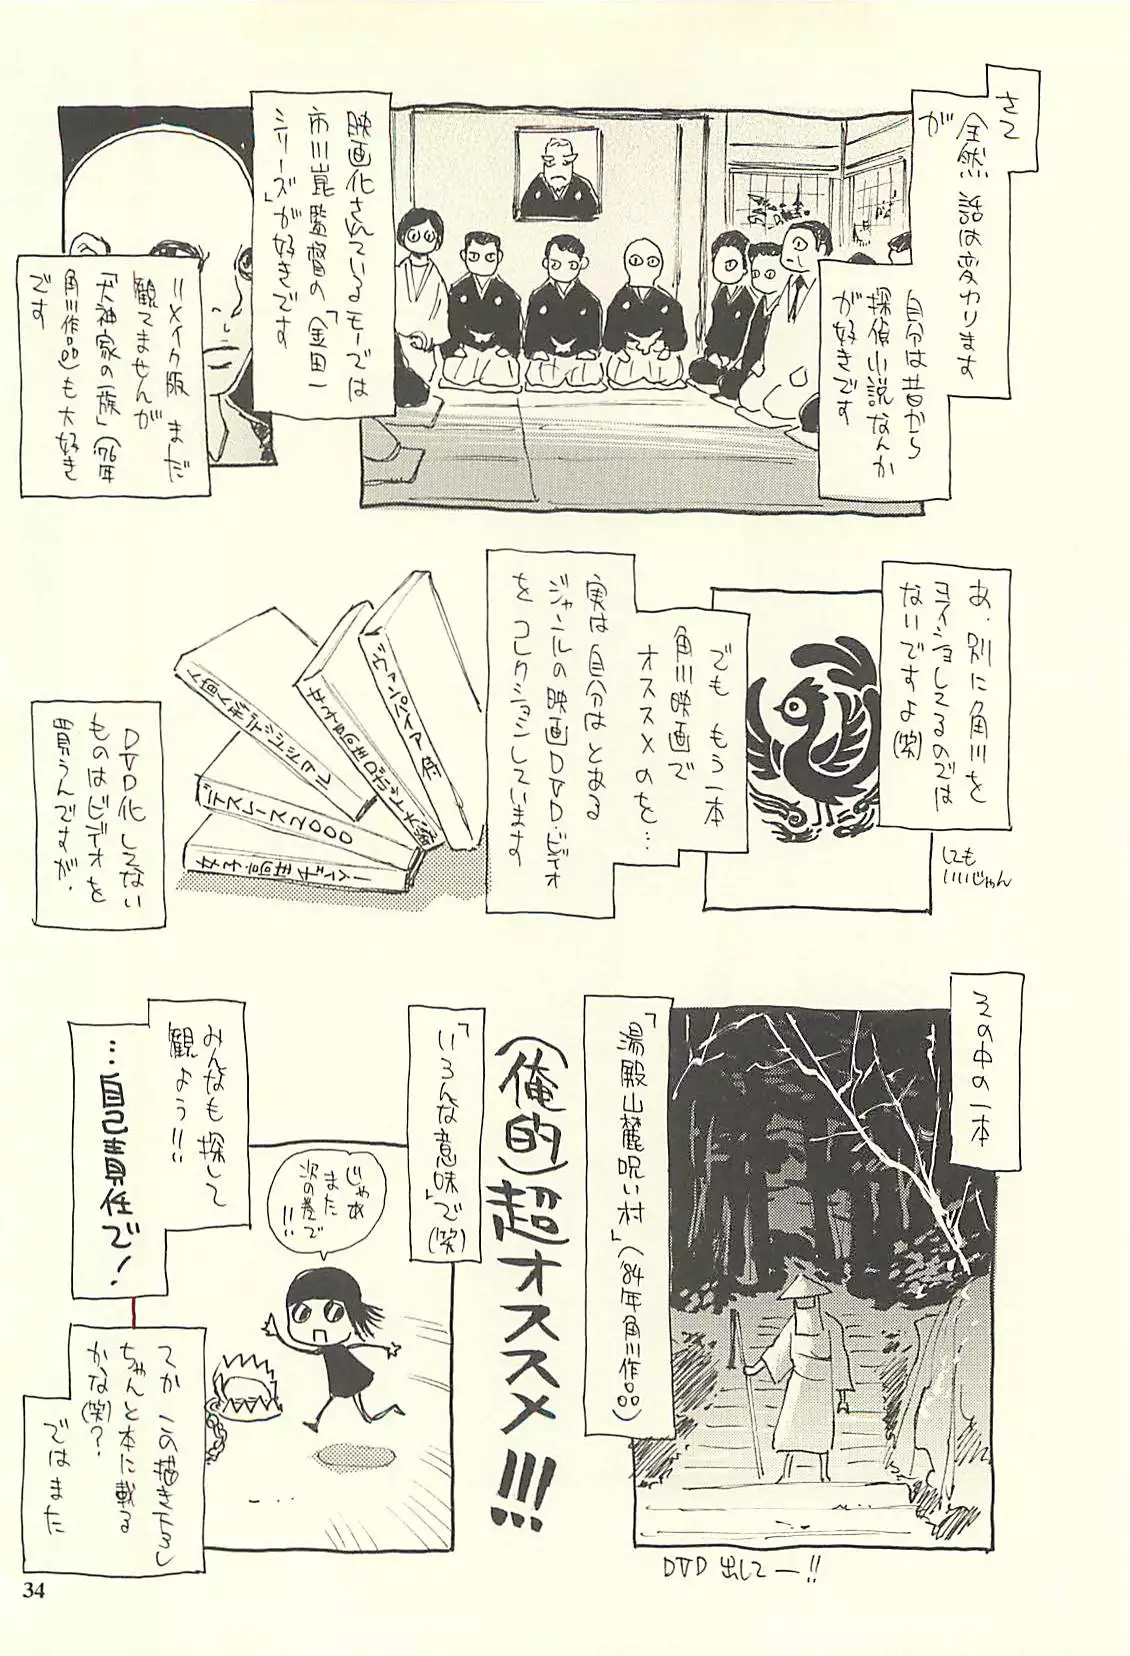 さて
全然 話は変わります
が
自分は昔から
探偵小説なんか
が好きです
映画化されているモノでは
市川崑監督の「金田一
シリーズ」が好きです
リメイク版 まだ
観てませんが
「犬神家の一族」('76年
角川作品)も大好き
です
あ、別に角川を
ヨイショしてるのでは
ないですよ(笑)
しても
いいじゃん
でも もう一本
角川映画で
オススメのを…
実は自分はとある
ジャンルの映画DVD・ビデオ
をコレクションしています
デスレース2000
DVD化してない
ものはビデオを
買うんですが、
その中の一本
「湯殿山麓呪い村」('84年角川作品)
DVD 出してー!!
(俺的)超オススメ!!!
「いろんな意味」で(笑)
みんなも探して
観よう!!
…自己責任で!
じゃあ
また
次の巻で
!!
てか この描き下ろし
ちゃんと本に載る
かな(笑)?
ではまた
34